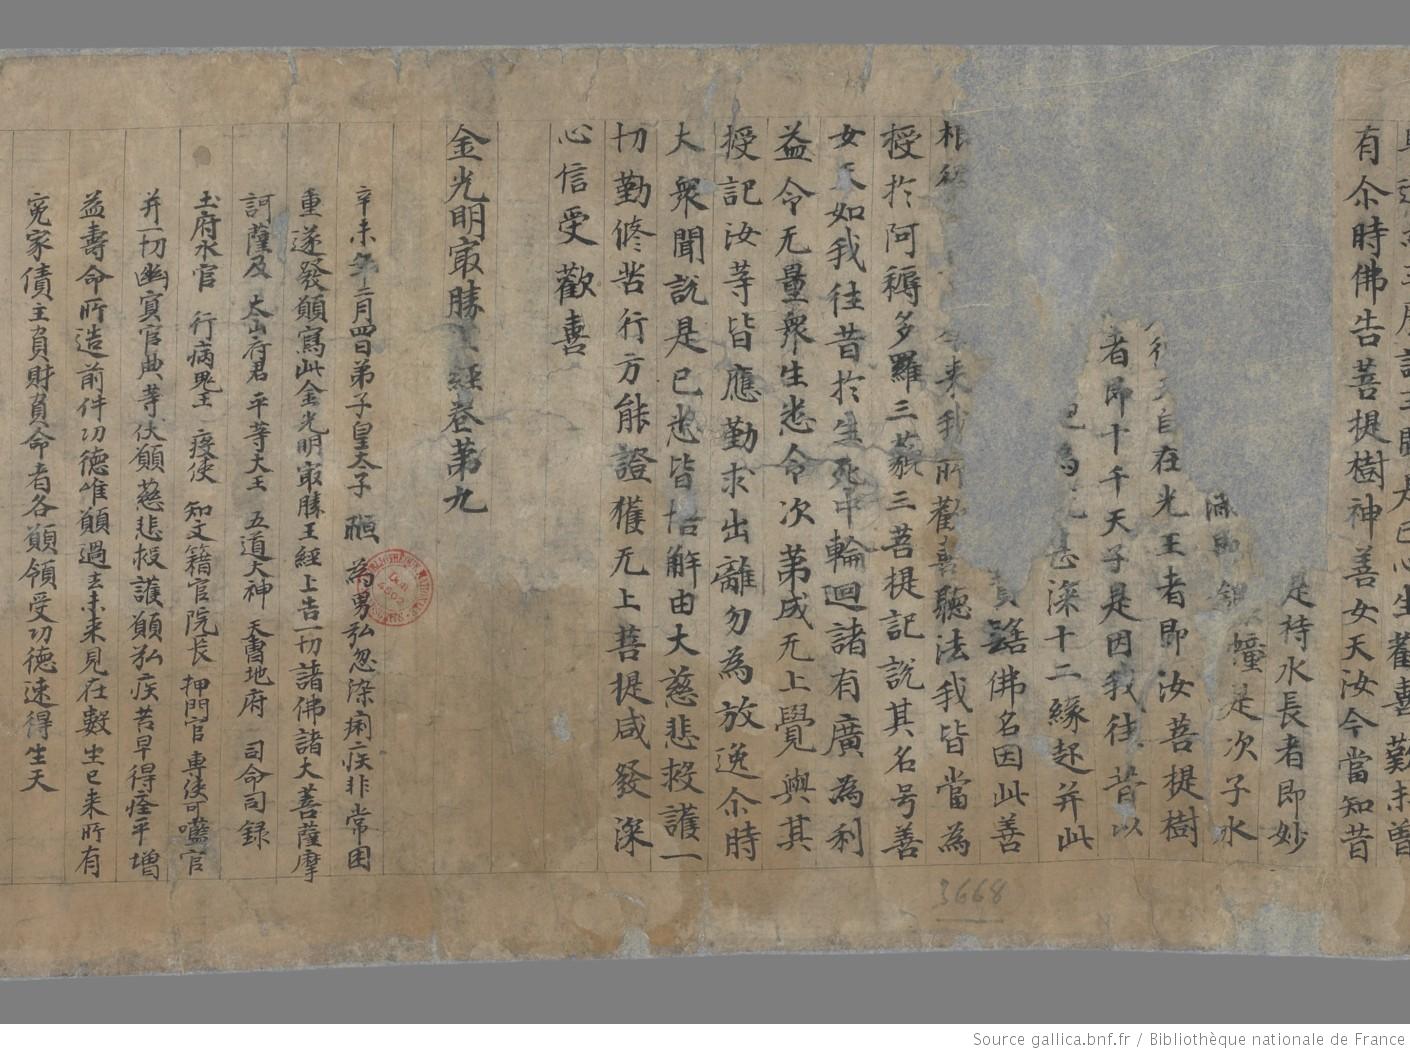 有尒時佛告菩提樹神善女天汝今當知昔
是持水長者即妙
幢是次子水
自在光王者即汝菩提樹
者即十千天子是因我往昔以
甚深十二緣起并此
佛名因此善
来我所歡喜聽法我皆當為
授於阿耨多羅三藐三菩提記說其名号善
女天如我往昔於生死中輪迴諸有廣為利
益令无量衆生悉令次第成无上覺與其
授記汝等皆應勤求出離勿為放逸尒時
大衆聞說是已悉皆悟解由大慈悲救護一
切勤修苦行方能證獲无上菩提咸發深
心信受歡喜
金光明㝡勝王經卷第九
辛未年二月四日弟子皇太子 為男弘忽染痢疾非常困
重遂發願寫此金光明㝡勝王經上告一切諸佛諸大菩薩摩
訶薩及 太山府君 平等大王 五道大神 天曹地府 司命司録
土府水官 行病鬼王 疫使 知文籍官院長 押門官 專使可㘕官
并一切幽冥官典等伏願慈悲救護願弘疾苦早得痊平增
益壽命所造前件功德唯願過去未来見在數生已来所有
寃家債主負財負命者各願領受功德速得生天
3668
Source gallica.bnf.fr / Bibliothèque nationale de France